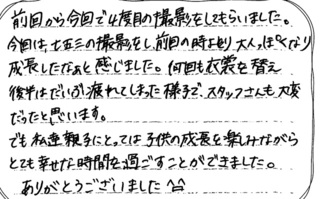 前回から今回で4度目の撮影をしてもらいました。
今回は、七五三の撮影をし、前回の時より大人っぽくなり
成長したなぁと感じました。何回も衣裳を替え
後半はだいぶ疲れてしまった様で、スタッフさんも大変
だったと思います。
でも私達親子にとっては子供の成長を楽しみながら
とても幸せな時間を過ごすことができました。
ありがとうございました^^